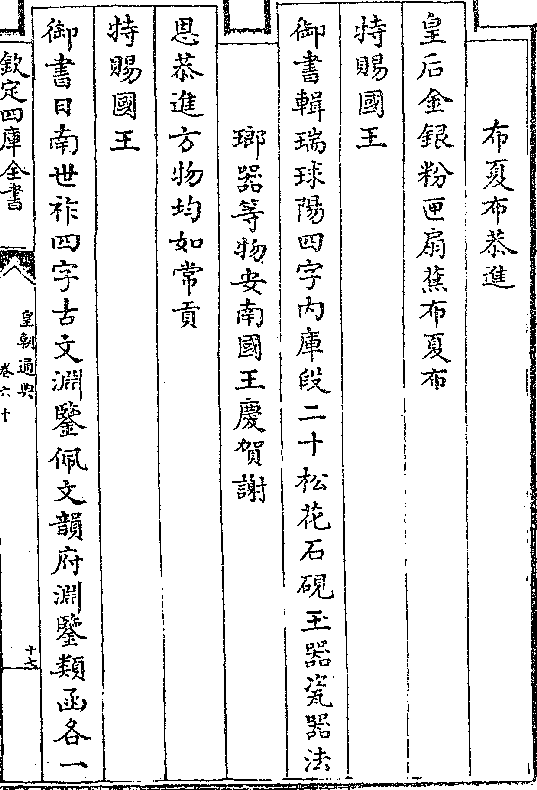 布夏布恭進
皇后金銀粉匣扇蕉布夏布
特賜國王
御書輯瑞球陽四字内庫段二十松花石硯玉器瓷器法
瑯器等物安南國王慶賀謝
恩恭進方物均如常貢
特賜國王
御書日南世祚四字古文淵鑒佩文韻府淵鑒類函各一
欽定四庫全書
皇朝通典
卷六十
十七